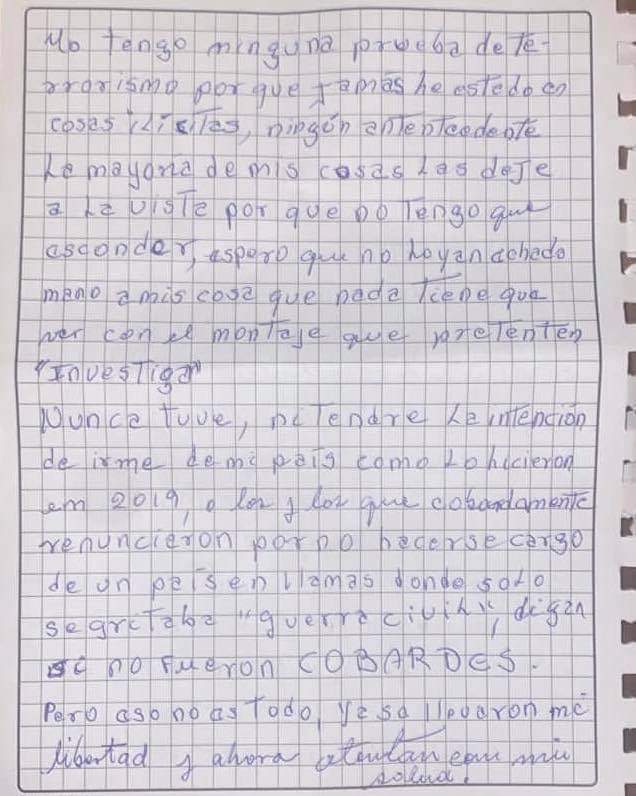 No tengo ninguna prueba de te-
rrorismo por que jamás he estado en
cosas ilicitas, ningún antentcedente
La mayoria de mis cosas las deje
a la vista por que no tengo que
esconder, espero que no hayan achado
mano a mis cosa que nada tiene que
ver con el montaje que pretenten
"Investigar"
Nunca tuve, ni tendre la intención
de irme de mi país como lo hicieron
em 2019, o los y los que cobardamente
renuncieron por no hacerse cargo
de un país en llamas donde solo
se gritaba "guerra civil", digan
si no fueron COBARDES.
Pero eso no es todo, ya se llevaron mi
libertad y ahora atentan con mi
salud.